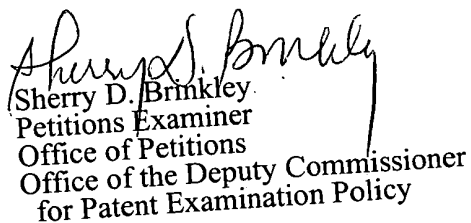 Sherry D. Brinkley
Sherry D. Brinkley
Petitions Examiner
Office of Petitions
Office of the Deputy Commissioner
for Patent Examination Policy